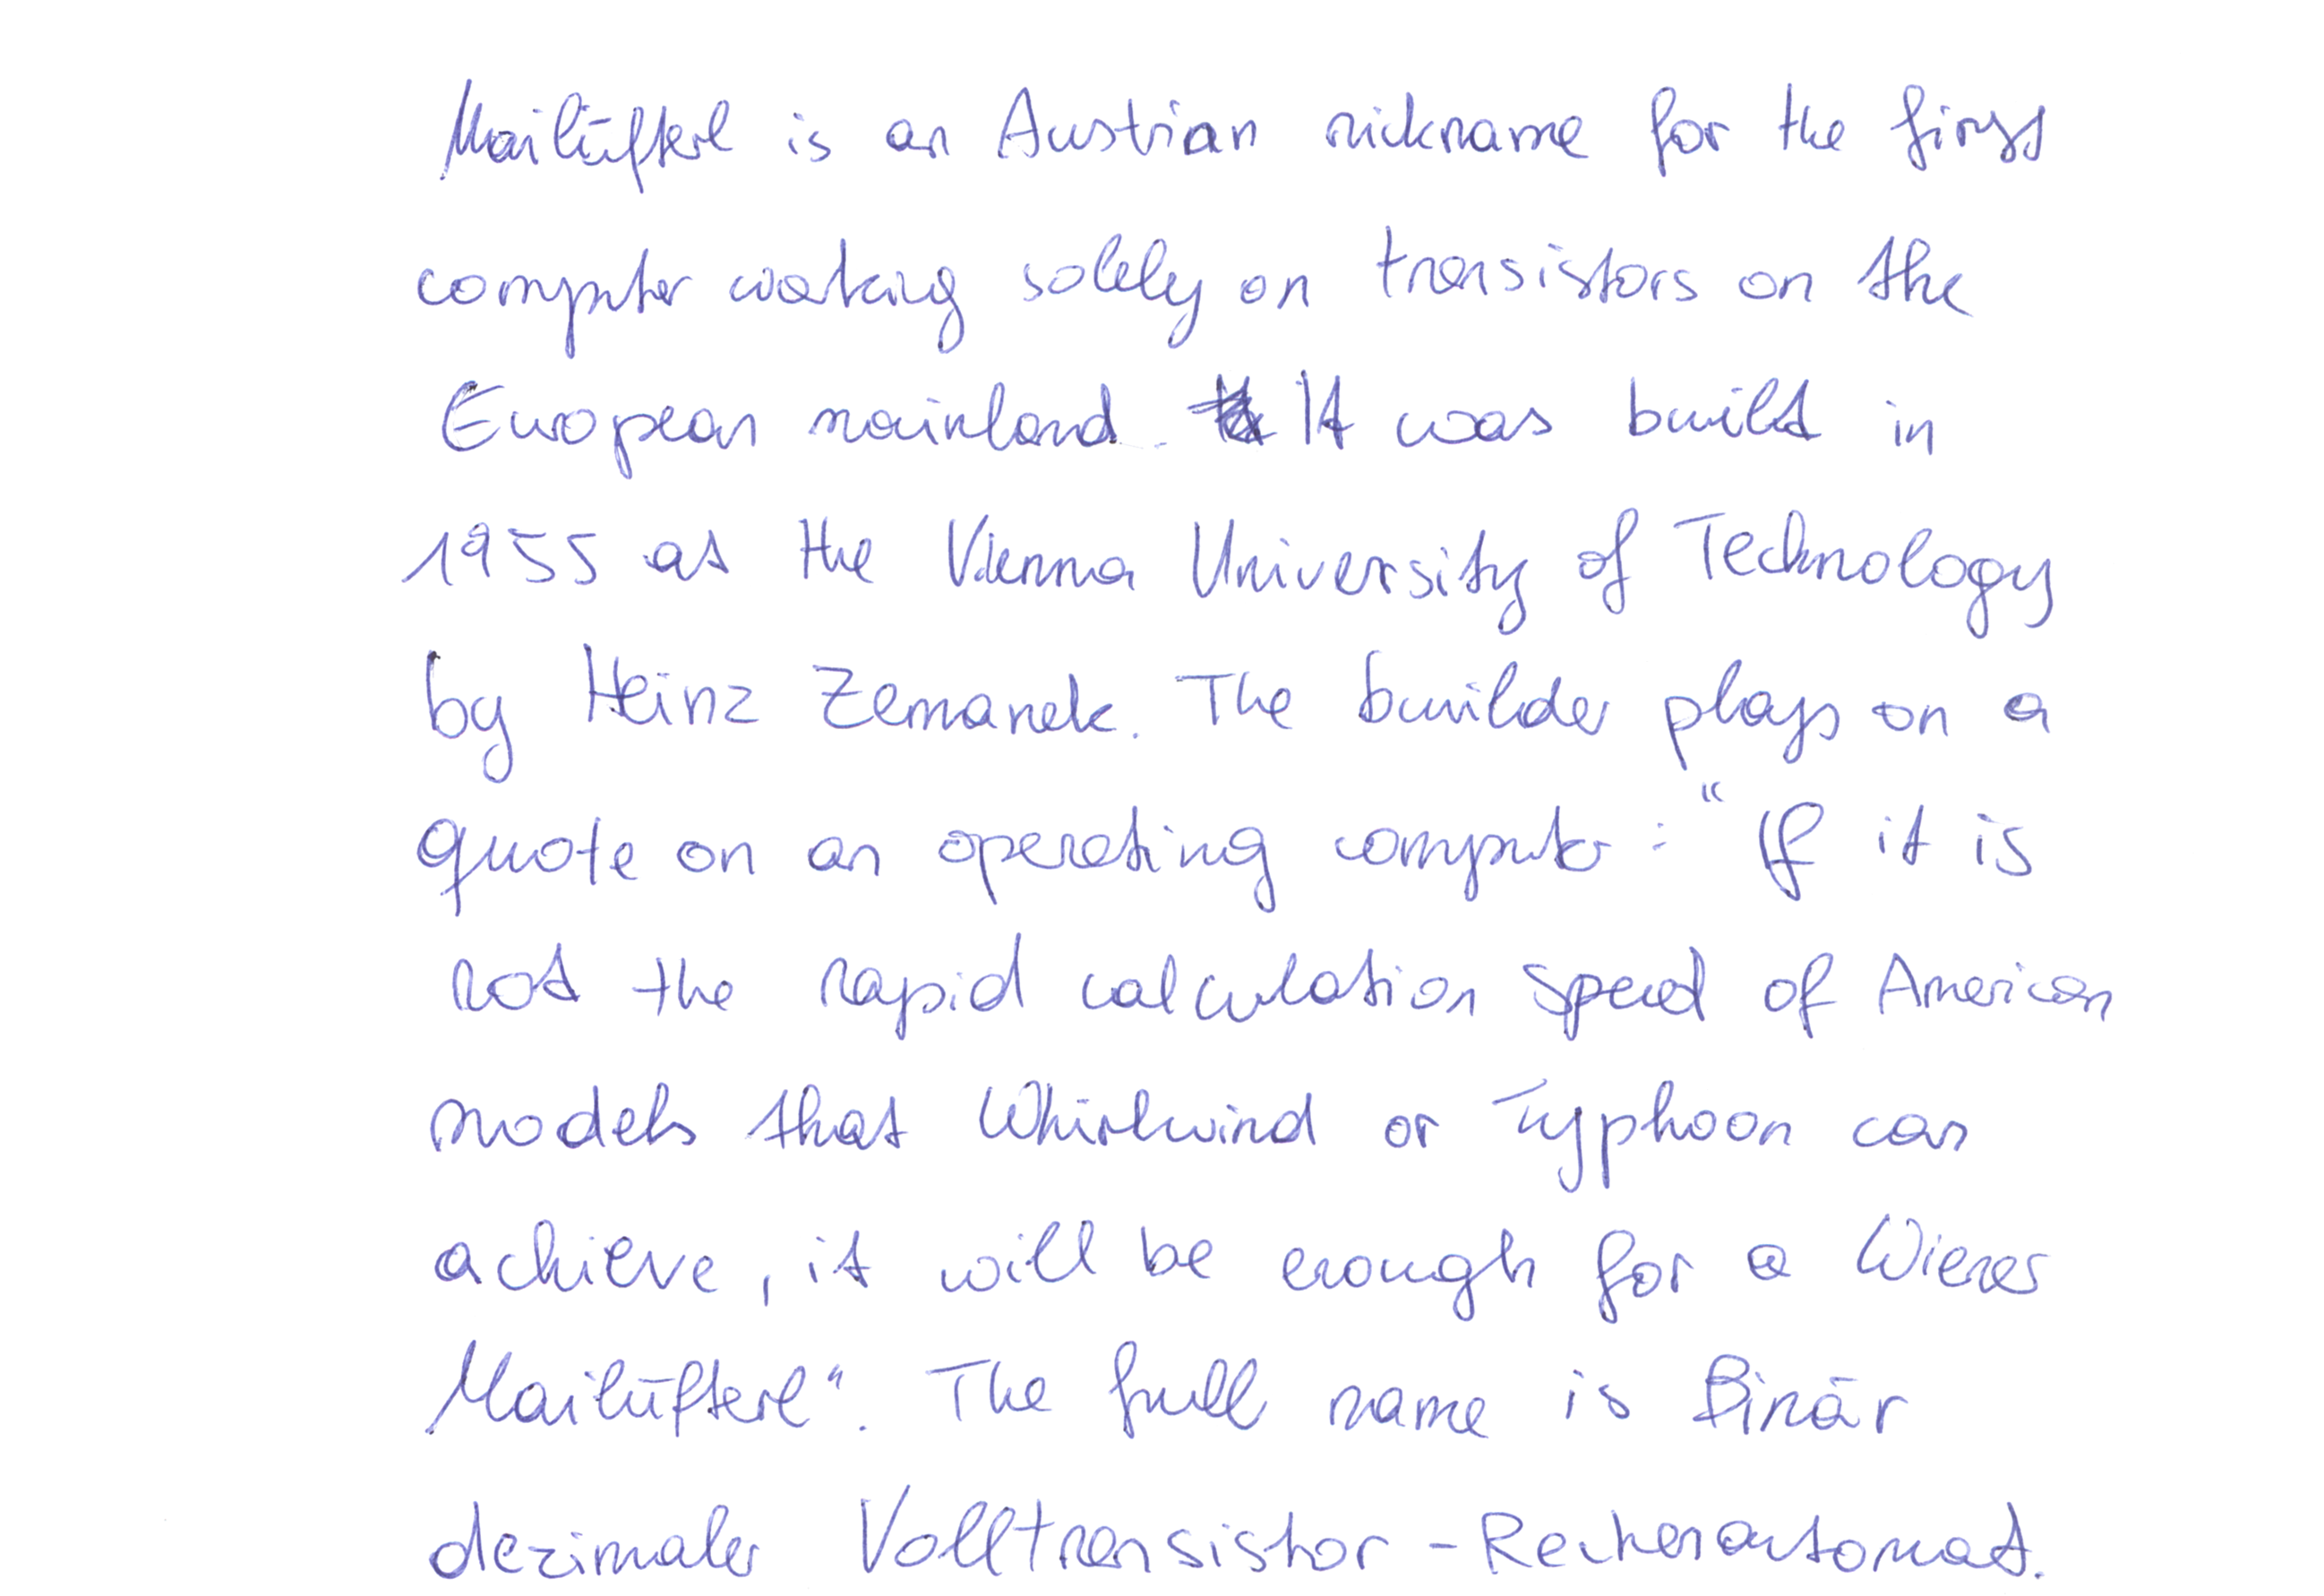 Mailüfterl is an Austrian nickname for the first
computer working solely on transistors on the
European mainland. It was built in
1955 at the Vienna University of Technology
by Heinz Zemanek. The builder plays on a
quote on an operating computer: "If it is
not the rapid calculation speed of American
models that Whirlwind or Typhoon can
achieve, it will be enough for a Wiener
Mailüfterl". The full name is Binär
dezimaler Volltransistor-Rechenautomat.